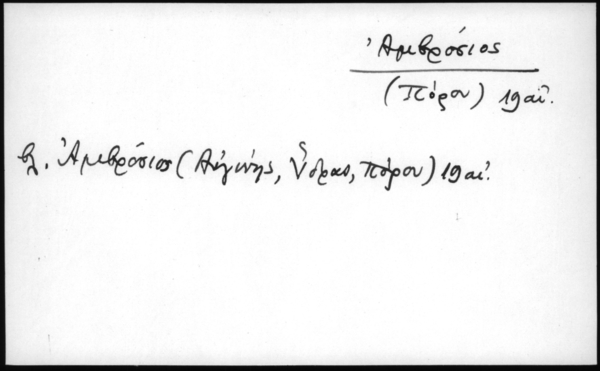 Ἀμβρόσιος
(Πόρου) 19 αἰ.
βλ. Ἀμβρόσιος (Αἰγίνης, Ὕδρας, Πόρου) 19 αἰ.